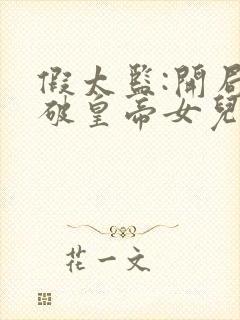 假太監:開局
破皇帝女兒
花一文